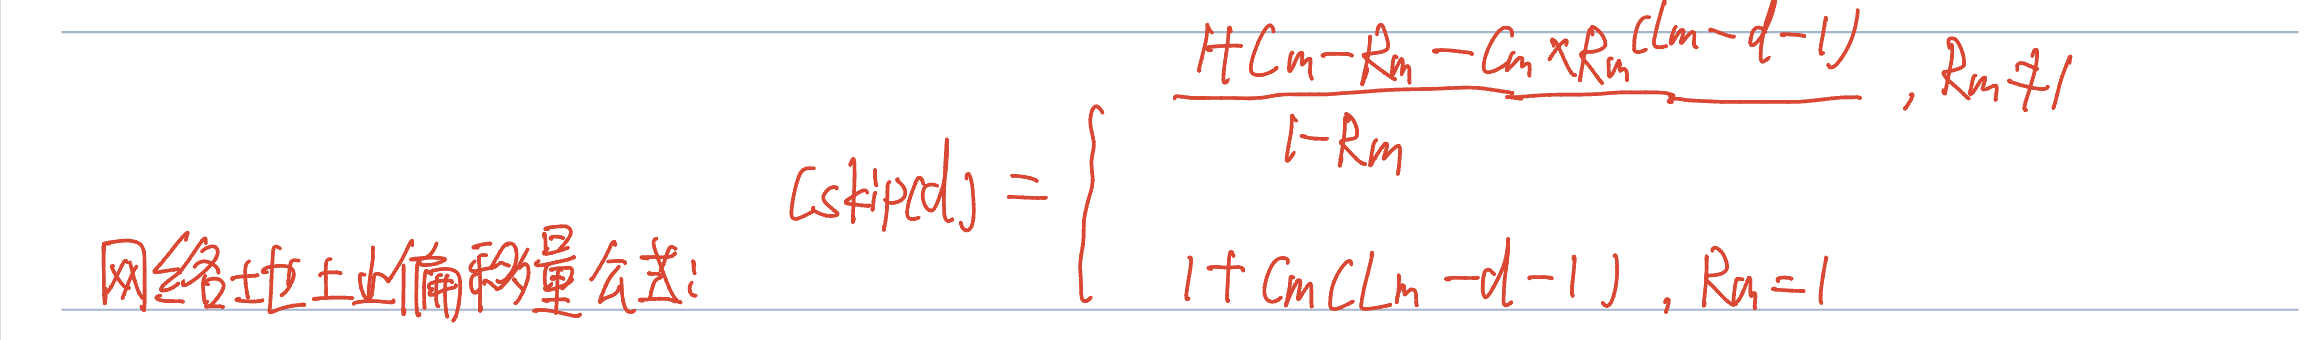 网络地址偏移量公式: Cskip(d) = { (1+Cm-Rm-Cm×Rm^(Lm-d-1)) / (1-Rm) , Rm≠1
1+Cm(Lm-d-1) , Rm=1